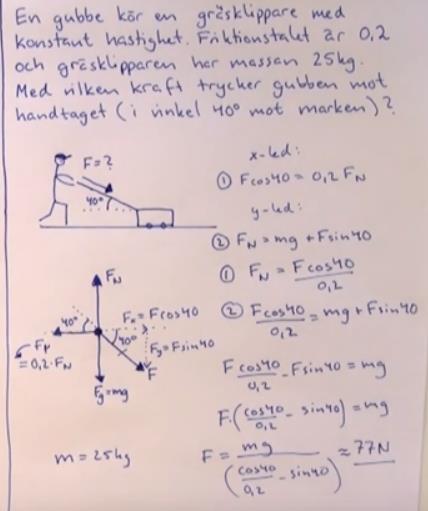 En gubbe kör en gräsklippare med
konstant hastighet. Friktionstalet är 0,2
och gräsklipparen har massan 25kg.
Med vilken kraft trycker gubben mot
handtaget (i vinkel 40° mot marken)?
F=?
40°
x-led:
① Fcos40 = 0,2 F_N
y-led:
② F_N = mg + Fsin40
① F_N = Fcos40/0,2
② Fcos40/0,2 = mg + Fsin40
F cos40/0,2 - Fsin40 = mg
F·(cos40/0,2 - sin40) = mg
F = mg/(cos40/0,2 - sin40) ≈ 77N
F_N
40°
F_x = Fcos40
40°
F_y = Fsin40
F_μ
= 0,2·F_N
F
F_g = mg
m = 25kg